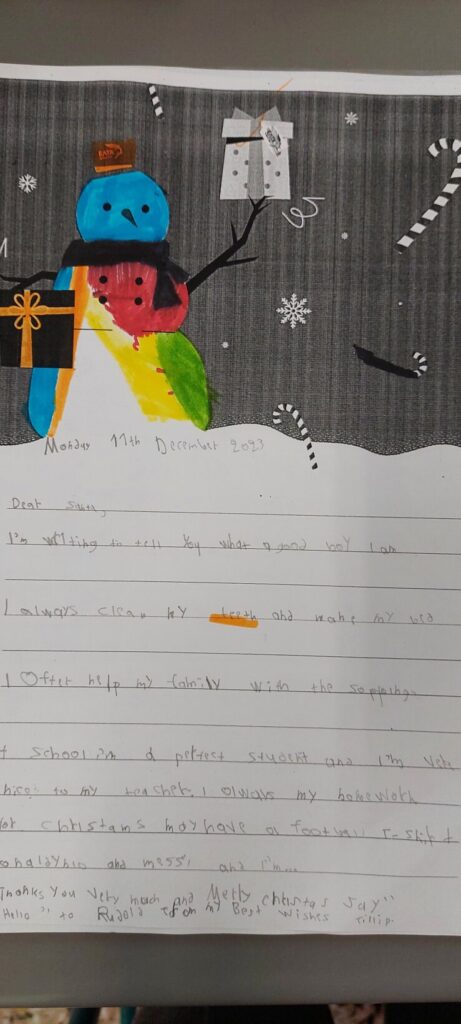 Monday 11th December 2023
Dear Santa,
I'm writing to tell you what a good boy I am
I always clean my teeth and make my bed
I Often help my family with the sopping.
t school i'm a perfect student and I'm very
nice to my teacher. I always my homework
or christams may have a football T-shirt
onaldynho and messi and I'm...
Thanks You Very much and Merry christas say"
Hello" to Rudolf from my Best wishes